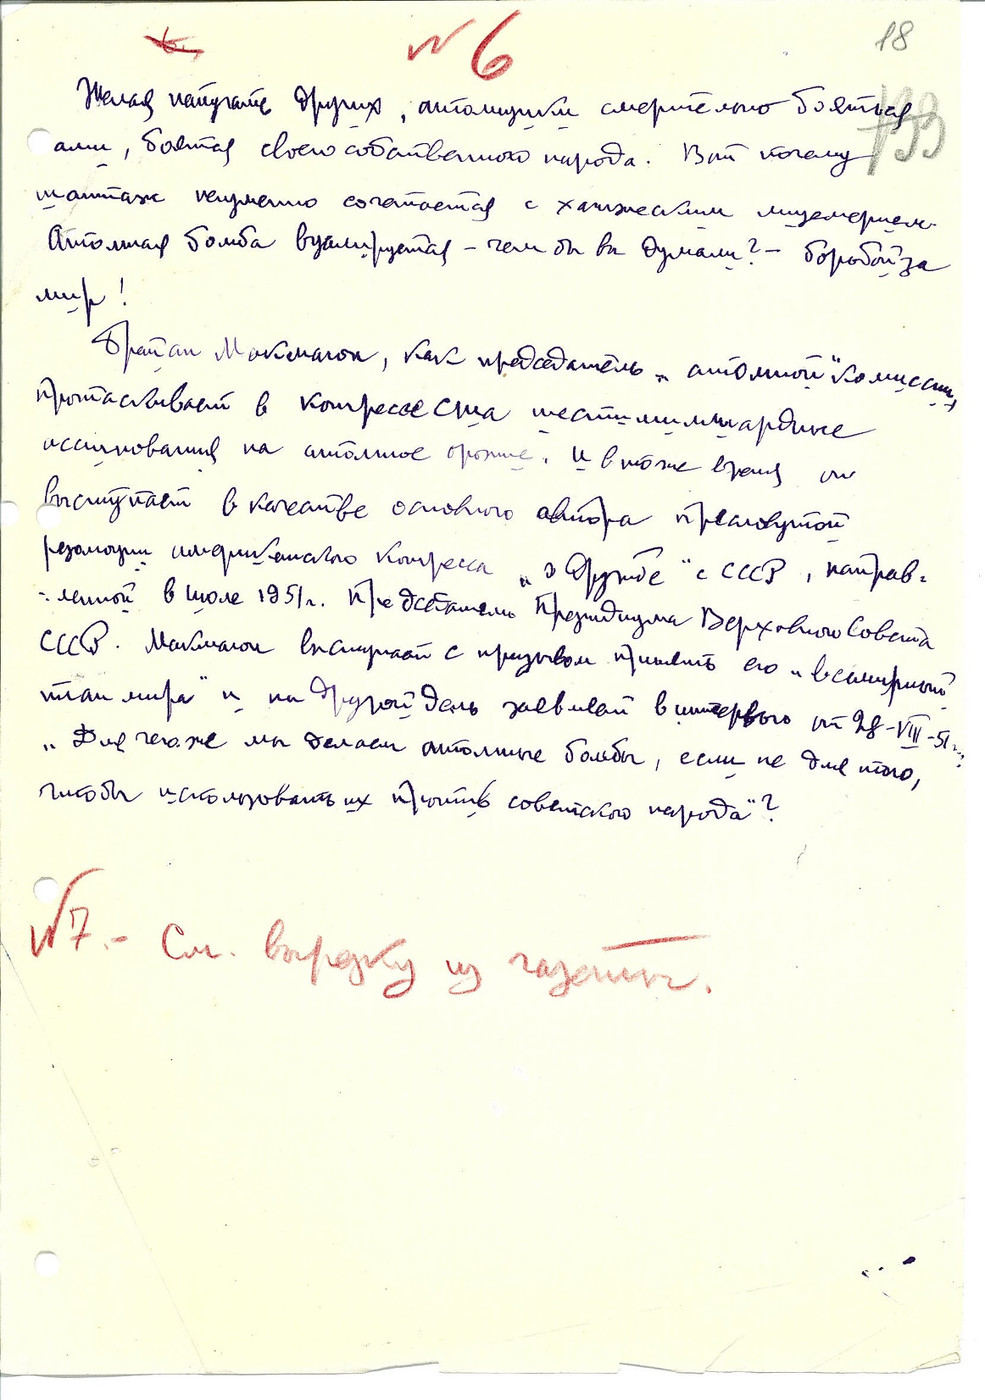 18
№ 6
133
Желая напугать других, атомщики смертельно боятся
сами, боятся своего собственного народа. Вот почему
шантаж неизменно сочетается с ханжеским лицемерием.
Атомная бомба вуалируется – чем бы вы думали? – борьбой за
мир!
Брайан Макмагон, как председатель „атомной" комиссии,
протаскивает в конгрессе США шестимиллиардные
ассигнования на атомное оружие. И в то же время он
выступает в качестве основного автора пресловутой
резолюции американского конгресса „о дружбе" с СССР, направ-
ленной в июле 1951 г. Председателю Президиума Верховного Совета
СССР. Макмагон выступает с призывом принять его „всемирный
план мира" и на другой день заявляет в интервью от 28-VIII-51 г.:
„Для чего же мы делаем атомные бомбы, если не для того,
чтобы использовать их против советского народа"?
№ 7. – См. вырезку из газеты.